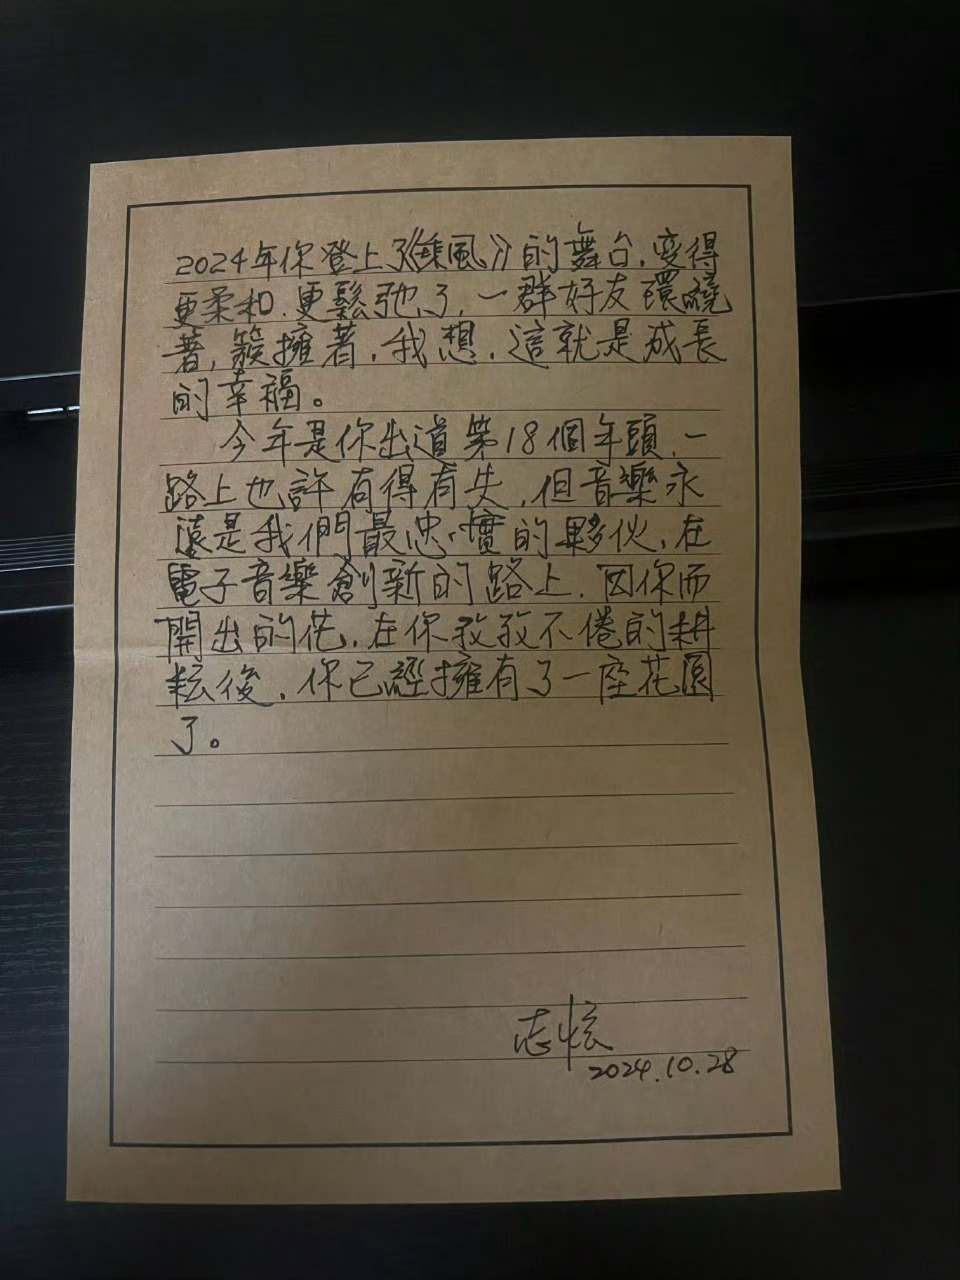 2024年你登上了《乘風》的舞台,變得
更柔和.更鬆弛了,一群好友環繞
著,簇擁著,我想,這就是成長
的幸福。
今年是你出道第18個年頭,一
路上也許有得有失,但音樂永
遠是我們最忠實的夥伙,在
電子音樂創新的路上,因你而
開出的花,在你孜孜不倦的耕
耘後,你已經擁有了一座花園
了。
志炫
2024.10.28